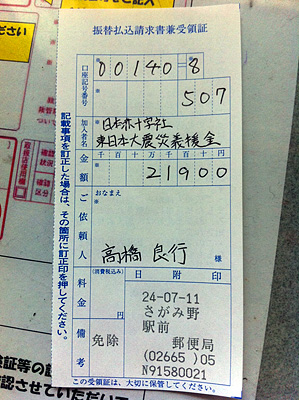 振替払込請求書兼受領証
口座記号番号
00140=8
507
加入者名
日本赤十字社
東日本大震災義援金
金額
千百十万千百十円
21900
ご依頼人
おなまえ
高橋良行
様
(消費税込み)
料金
円
日附印
備考
免除
24-07-11
さがみ野
駅前
郵便局
(02665)05
N91580021
この受領証は、大切に保管してください。
記載事項を訂正した場合は、その箇所に訂正印を押してください。
ださい